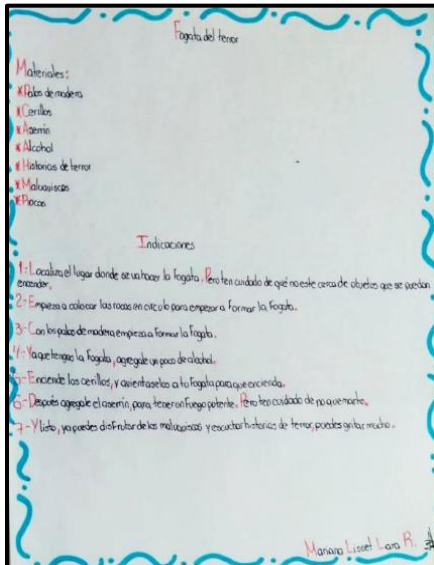 Fogata del terror
Materiales:
*Palos de madera
*Cerillos
*Aserrin
*Alcohol
*Historias de terror
*Malvaviscos
*Rocas
Indicaciones
1-Localiza el lugar donde se va hacer la fogata. Pero ten cuidado de qué no este cerca de objetos que se puedan
encender.
2-Empieza a colocar las rocas en circulo para empezar a formar la fogata.
3-Con los palos de madera empieza a formar la fogata.
4-Ya que tengas la fogata, agregale un poco de alcohol.
5-Enciende los cerillos, y avientaselos a tu fogata para que encienda.
6-Después agregale el aserrin, para tener un fuego potente. Pero ten cuidado de no quemarte.
7-Y listo, ya puedes disfrutar de los malvaviscos y escuchar historias de terror, puedes gritar mucho.
Mariana Lisset Lara R.